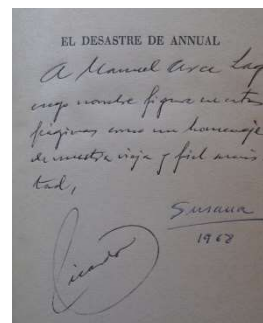 EL DESASTRE DE ANNUAL
A Manuel Arce Lago
cuyo nombre figura en estas
páginas como un homenaje
de nuestra vieja y fiel amis
tad,
Susana
1968
Ricardo